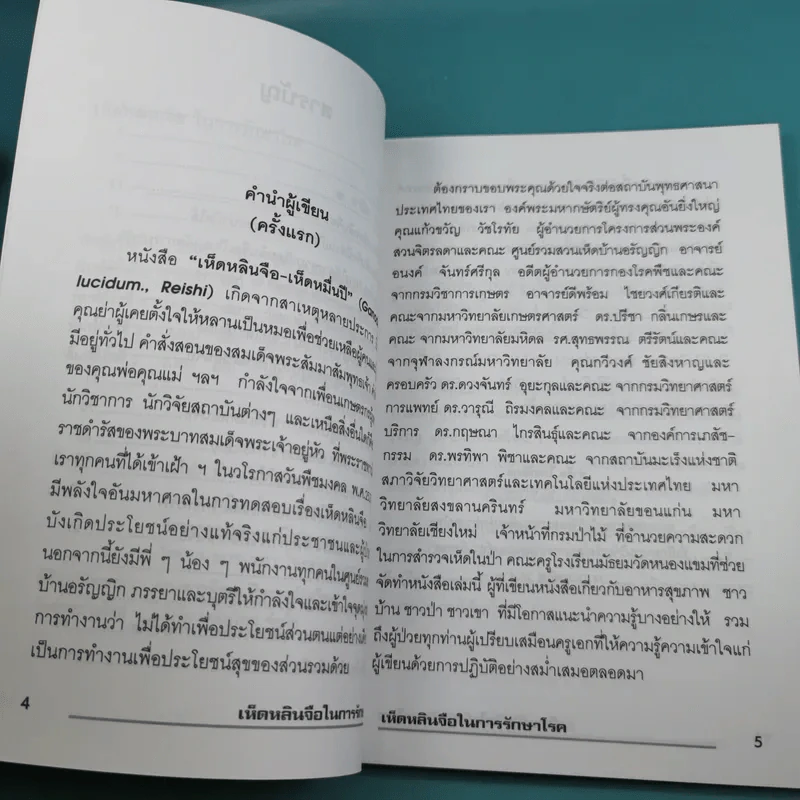 สารบัญ
คำนำผู้เขียน
(ครั้งแรก)
หนังสือ “เห็ดหลินจือ-เห็ดหมื่นปี”
lucidum., Reishi) เกิดจากสาเหตุหลายประการ
คุณย่าผู้เคยตั้งใจให้หลานเป็นหมอเพื่อช่วยเหลือ
มีอยู่ทั่วไป คำสั่งสอนของสมเด็จพระสัมมาสัมพุทธเจ้า
ของคุณพ่อคุณแม่ ฯลฯ กำลังใจจากเพื่อน
นักวิชาการ นักวิจัยสถาบันต่างๆ และเหนือสิ่งอื่นใด
ราชดำรัสของพระบาทสมเด็จพระเจ้าอยู่หัว ที่พระราชทาน
เราทุกคนที่ได้เข้าเฝ้า ฯ ในวโรกาสวันพืชมงคล พ.ศ.
มีพลังใจอันมหาศาลในการทดสอบเรื่องเห็ดหลินจือ
บังเกิดประโยชน์อย่างแท้จริงแก่ประชาชน
นอกจากนี้ยังมีพี่ ๆ น้อง ๆ พนักงานทุกคนในศูนย์รวม
บ้านอรัญญิก ภรรยาและบุตรีให้กำลังใจและเข้าใจ
การทำงานว่า ไม่ได้ทำเพื่อประโยชน์ส่วนตนแต่อย่างใด
เป็นการทำงานเพื่อประโยชน์สุขของส่วนรวมด้วย
4
เห็ดหลินจือในการรักษ
ต้องกราบขอบพระคุณด้วยใจจริงต่อสถาบันพุทธศาสนา
ประเทศไทยของเรา องค์พระมหากษัตริย์ผู้ทรงคุณอันยิ่งใหญ่
คุณแก้วขวัญ วัชโรทัย ผู้อำนวยการโครงการส่วนพระองค์
สวนจิตรลดาและคณะ ศูนย์รวมสวนเห็ดบ้านอรัญญิก อาจารย์
อนงค์ จันทร์ศรีกุล อดีตผู้อำนวยการกองโรคพืชและคณะ
จากกรมวิชาการเกษตร อาจารย์ดีพร้อม ไชยวงศ์เกียรติและ
คณะจากมหาวิทยาลัยเกษตรศาสตร์ ดร.ปรีชา กลิ่นเกษรและ
คณะ จากมหาวิทยาลัยมหิดล รศ.สุทธพรรณ ตรีรัตน์และคณะ
จากจุฬาลงกรณ์มหาวิทยาลัย คุณกวีวงศ์ ชัยสิงหาญและ
ครอบครัว ดร.ดวงจันทร์ อุยะกุลและคณะ จากกรมวิทยาศาสตร์
การแพทย์ ดร.วารุณี ถิรมงคลและคณะ จากกรมวิทยาศาสตร์
บริการ ดร.กฤษณา ไกรสินธุ์และคณะ จากองค์การเภสัช-
กรรม ดร.พรทิพา พิชาและคณะ จากสถาบันมะเร็งแห่งชาติ
สภาวิจัยวิทยาศาสตร์และเทคโนโลยีแห่งประเทศไทย มหา
วิทยาลัยสงขลานครินทร์ มหาวิทยาลัยขอนแก่น มหา
วิทยาลัยเชียงใหม่ เจ้าหน้าที่กรมป่าไม้ ที่อำนวยความสะดวก
ในการสำรวจเห็ดในป่า คณะครูโรงเรียนมัธยมวัดหนองแขมที่ช่วย
จัดทำหนังสือเล่มนี้ ผู้ที่เขียนหนังสือเกี่ยวกับอาหารสุขภาพ ชาว
บ้าน ชาวป่า ชาวเขา ที่มีโอกาสแนะนำความรู้บางอย่างให้ รวม
ถึงผู้ป่วยทุกท่านผู้เปรียบเสมือนครูเอกที่ให้ความรู้ความเข้าใจแก่
ผู้เขียนด้วยการปฏิบัติอย่างสม่ำเสมอตลอดมา
เห็ดหลินจือในการรักษาโรค
5